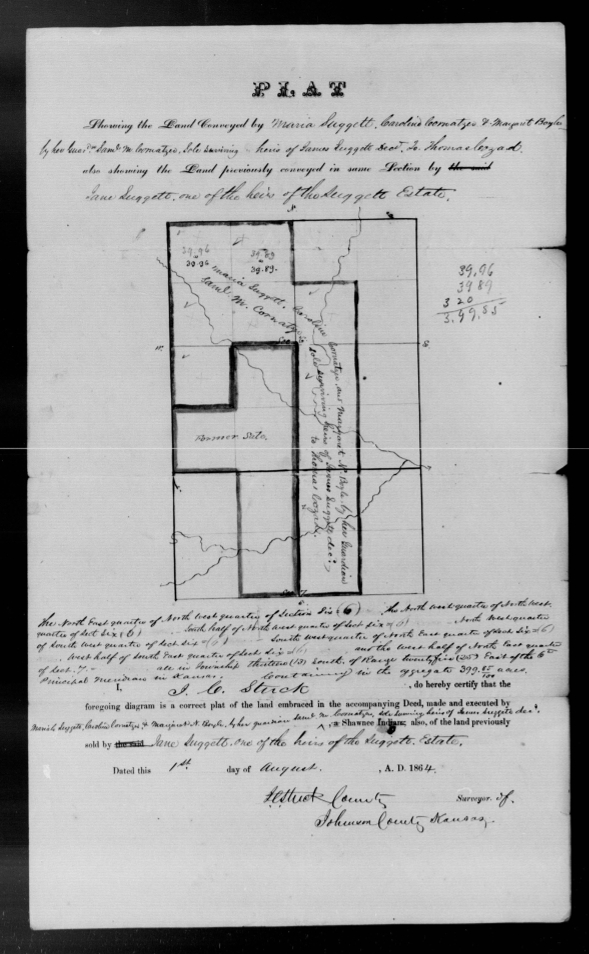 PLAT
Showing the Land Conveyed by Maria Suggett, Caroline Cornatzer & Margaret Boyle
by her Guardn Saml M. Cornatzer, Sole Surviving heirs of James Suggett Decd. To Thomas Cozad.
also showing the Land previously conveyed in same Section by the said
Jane Suggett, one of the heirs of the Suggett Estate.
39.96
39.96
39.89
39.89
39.96
39.89
3 20
3.99.85
Maria Suggett, Caroline Cornatzer and Margaret N. Boyle, by her Guardian
Saml M. Cornatzer
sole surviving heirs of James Suggett decd.
to Thomas Cozad.
Sec 6
Former Sale.
Sec 7
The North East quarter of North west quarter of Section Six (6) the North west quarter of North west
quarter of Sect Six (6) South half of North west quarter of Sect six (6) North West quarter
of South west quarter of Sect six (6) South west quarter of North East quarter of Sect six (6)
West half of South East quarter of Sect six (6) and the West half of North East quarter
of Sect. 7. all in Township thirteen (13) South, of Range twenty five (25) East of the 6th
Principal Meridian in Kansas. Containing in the aggregate 399.85/100 acres.
I, J. C. Struck, do hereby certify that the
foregoing diagram is a correct plat of the land embraced in the accompanying Deed, made and executed by
Maria Suggett, Caroline Cornatzer, & Margaret N. Boyle, by her guardian Saml M. Cornatzer, sole surviving heirs of James Suggett decd.
Shawnee Indians; also, of the land previously
sold by the said Jane Suggett, one of the heirs of the Suggett Estate,
Dated this 1st day of August, A. D. 1864.
J. C. Struck County Surveyor. of.
Johnson County Kansas.